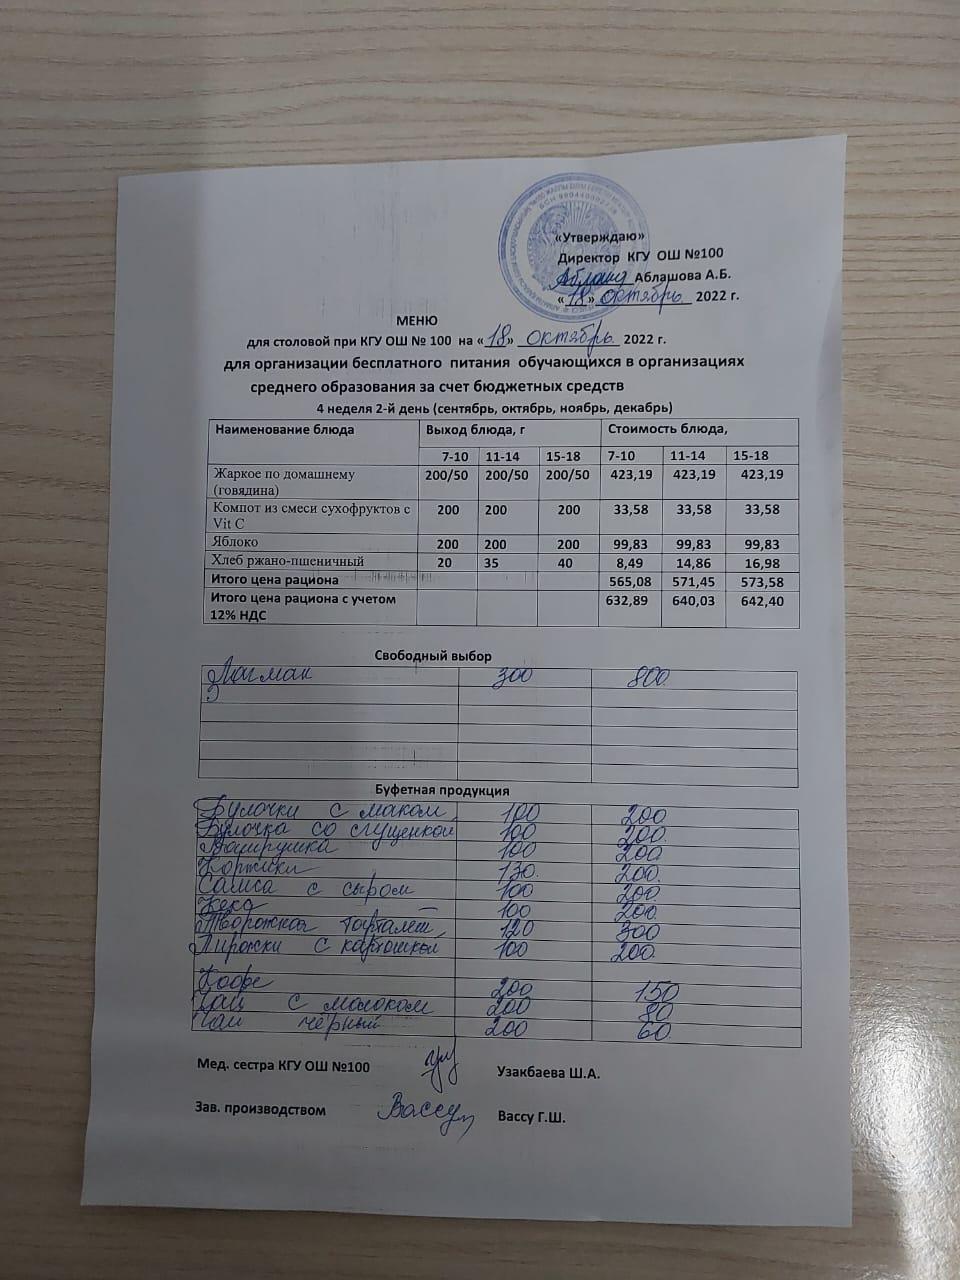 «Утверждаю»
Директор КГУ ОШ №100
Аблашова А.Б.
«18» октябрь 2022 г.
МЕНЮ
для столовой при КГУ ОШ № 100 на «18» октябрь 2022 г.
для организации бесплатного питания обучающихся в организациях
среднего образования за счет бюджетных средств
4 неделя 2-й день (сентябрь, октябрь, ноябрь, декабрь)
Наименование блюда Выход блюда, г Стоимость блюда,
7-10 11-14 15-18 7-10 11-14 15-18
Жаркое по домашнему 200/50 200/50 200/50 423,19 423,19 423,19
(говядина)
Компот из смеси сухофруктов с 200 200 200 33,58 33,58 33,58
Vit C
Яблоко 200 200 200 99,83 99,83 99,83
Хлеб ржано-пшеничный 20 35 40 8,49 14,86 16,98
Итого цена рациона 565,08 571,45 573,58
Итого цена рациона с учетом 632,89 640,03 642,40
12% НДС
Свободный выбор
Лагман 300 800
Буфетная продукция
Булочки с маком 100 200
Булочка со сгущенкой 100 200
Ватрушка 100 200
Коржики 130 200
Самса с сыром 100 200
Кекс 100 200
Творожная 120 300
Пирожки с картошкой 100 200
Кофе 200 150
Чай с молоком 200 80
Чай чёрный 200 60
Мед. сестра КГУ ОШ №100 Узакбаева Ш.А.
Зав. производством Вассу Вассу Г.Ш.